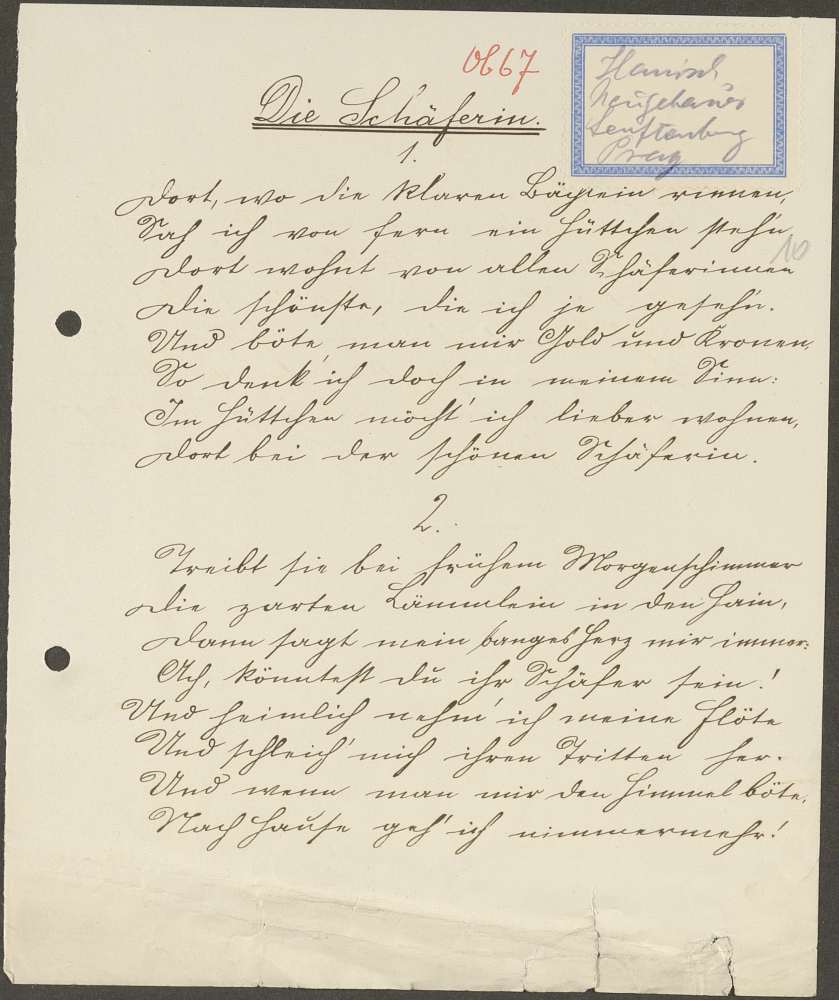 Ob67
Hanisch
Neugebauer
Senftenberg
Prag
Die Schäferin.
1.
Dort, wo die klaren Bächlein rinnen,
Sah ich von fern ein Hüttchen steh'n
10
Dort wohnt von allen Schäferinnen
Die schönste, die ich je geseh'n.
Und böte man mir Gold und Kronen,
So denk' ich doch in meinem Sinn:
Im Hüttchen möcht' ich lieber wohnen,
Dort bei der schönen Schäferin.
2.
Treibt sie bei frühem Morgenschimmer
Die zarten Lämmlein in den Hain,
Dann sagt mein banges Herz mir immer:
Ach, könntest du ihr Schäfer sein!
Und heimlich nehm' ich meine Flöte
Und schleich' mich ihren Tritten her.
Und wenn man mir den Himmel böte,
Nach Hause geh' ich nimmermehr!